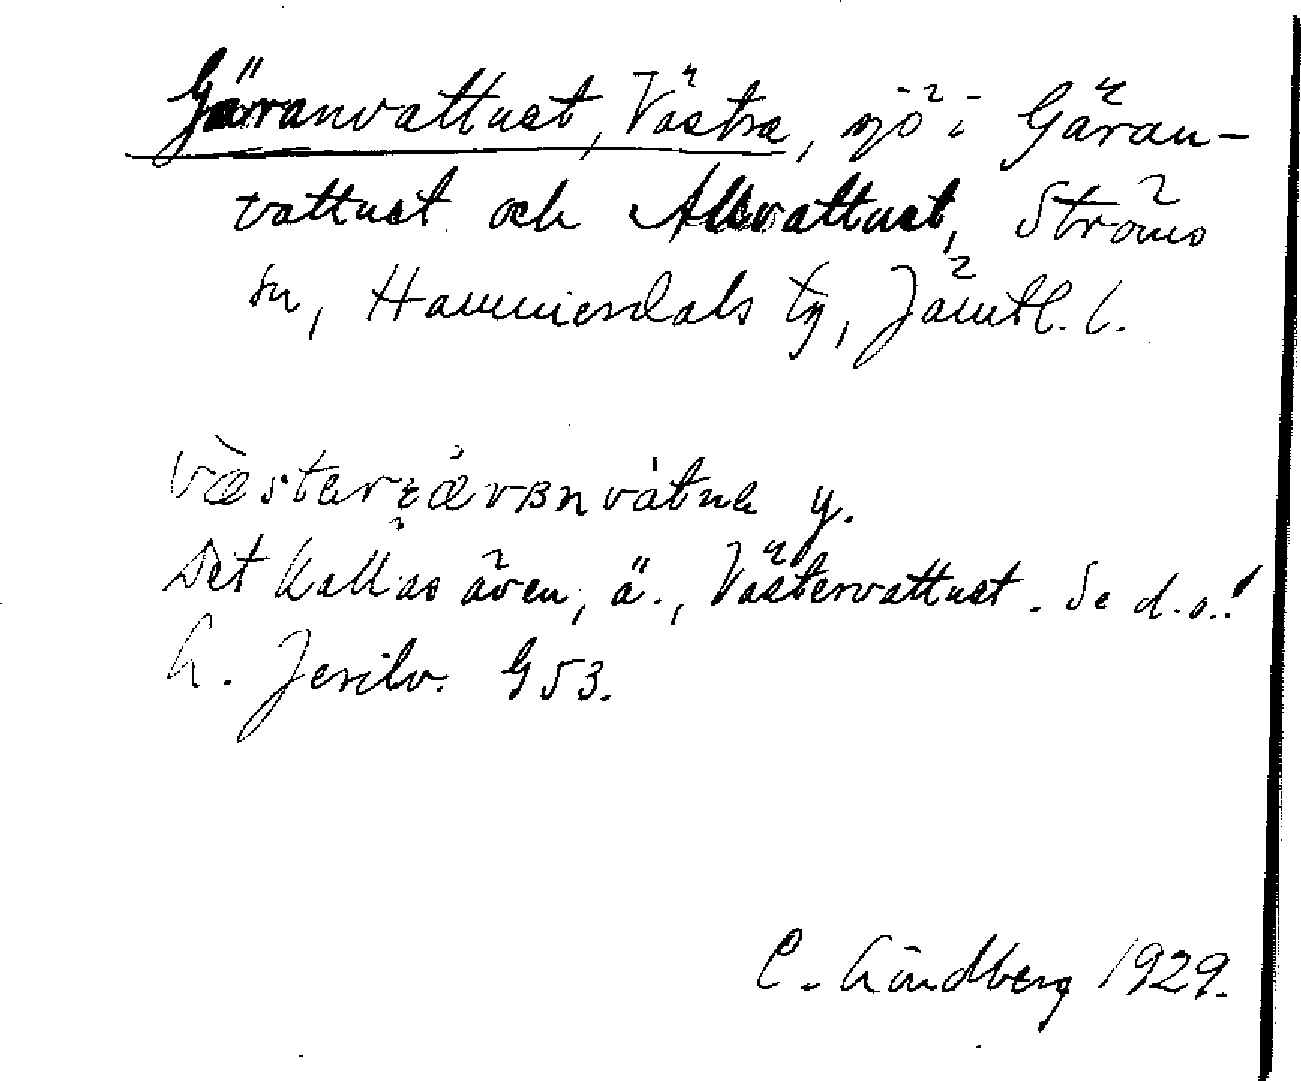 Gäranvattnet, Västra, sjö i Gäran-
vattnet och Alavattnet, Ströms
sn, Hammerdals tg, Jämtl. l.
y.
Det kallas även, ä., Västervattnet. Se d.o.!
G 53.
C. Lindberg 1929.